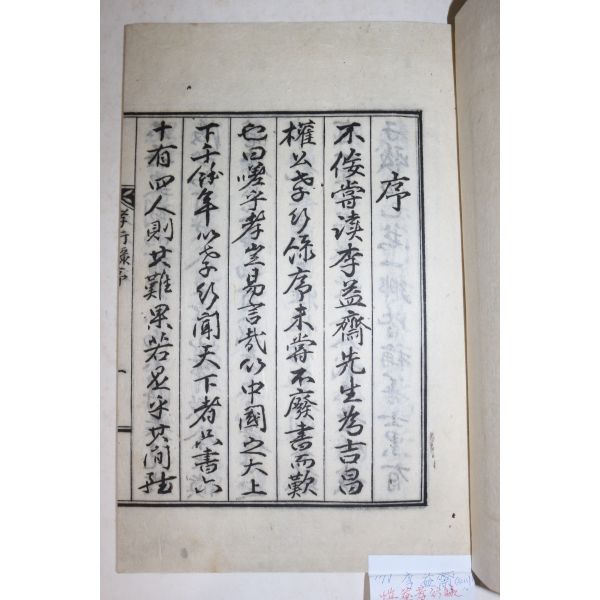 序
不佞嘗讀李益齋先生爲吉昌
權公孝行錄序未嘗不廢書而歎
也曰嗟乎孝豈易言哉以中國之大上
下千餘年以孝行聞天下者只書六
十有四人則其難果若是乎其間
孝行錄序
李益齋